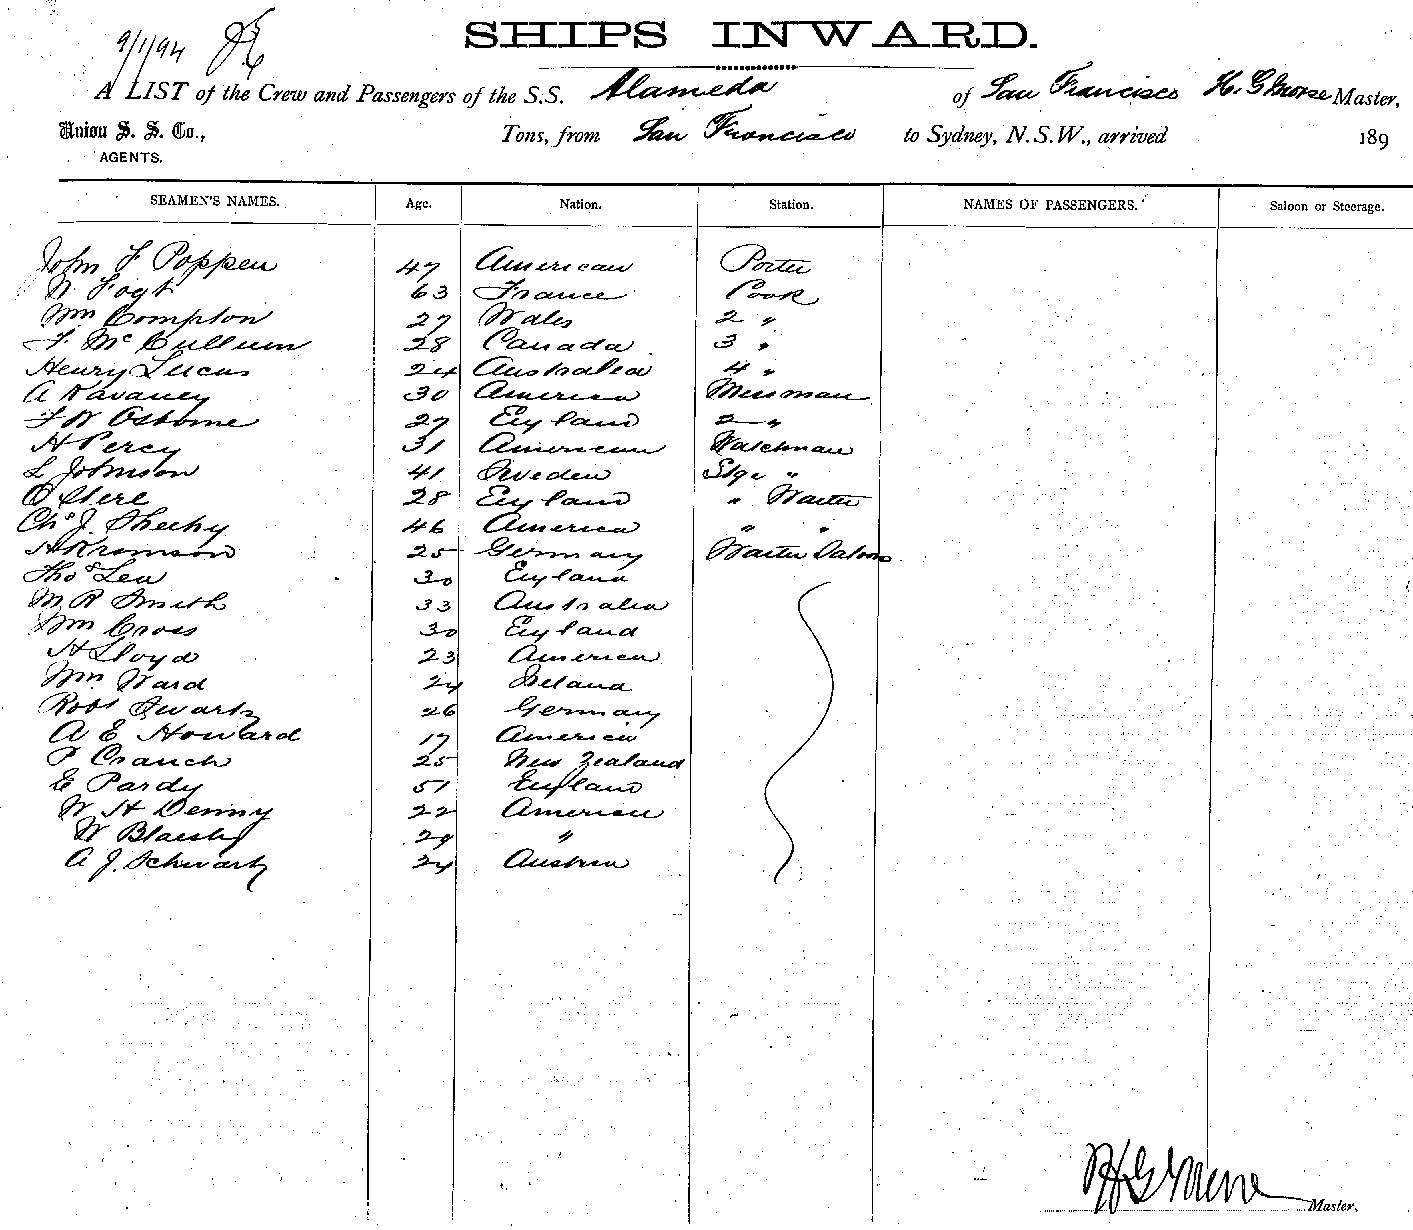 9/1/94
SHIPS INWARD.
A LIST of the Crew and Passengers of the S.S. Alameda of San Francisco H. G Morse Master,
Union S. S. Co., Tons, from San Francisco to Sydney, N.S.W., arrived 189
AGENTS.
SEAMEN'S NAMES. Age. Nation. Station. NAMES OF PASSENGERS. Saloon or Steerage.
John F Poppen 47 American Porter
N. Fogt 63 France Cook
Wm Compton 27 Wales 2 "
F. McCullum 28 Canada 3 "
Henry Lucas 24 Australia 4 "
A Kavaney 30 America Messman
F W Osborne 27 England 2 "
H Percy 31 American Watchman
L Johnson 41 Sweden Stge "
O Clere 28 England " Waiter
Chs J. Sheehy 46 America " "
H Kromson 25 Germany Waiter Saloon
Thos Lea 30 England
M R Smith 33 Australia
Wm Cross 30 England
H Lloyd 23 America
Wm Ward 24 Ireland
Robt Swartz 26 Germany
A E Howard 17 America
P Cranch 25 New Zealand
E Pardy 51 England
W H Denny 22 American
W 29 "
A J. Schwartz 24 Austria
H G Morse Master.